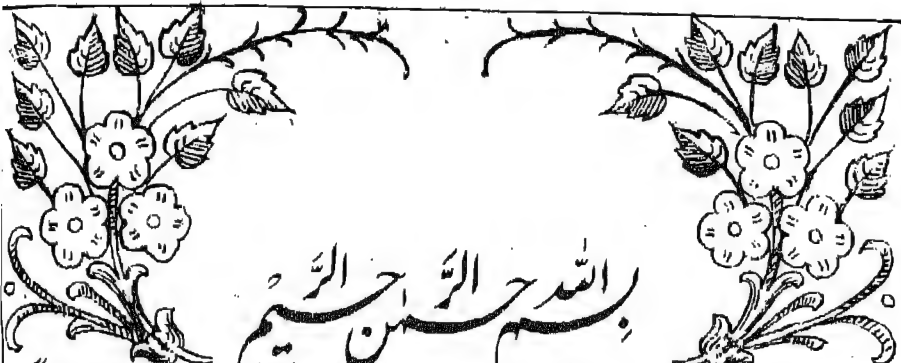 بِسم الله الرَّحمٰن الرَّحيمْ